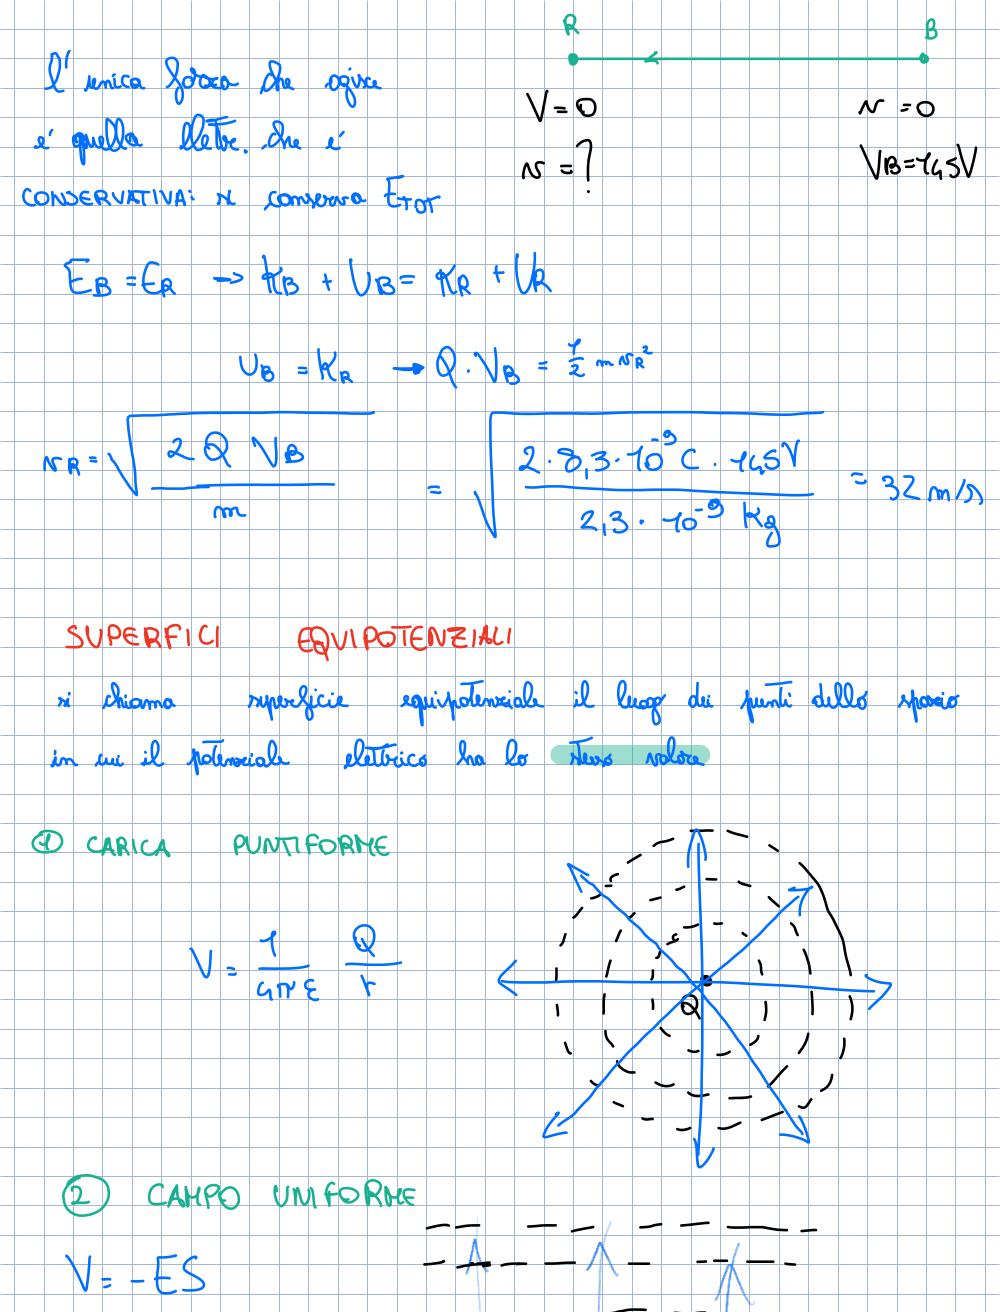 R B
l'unica forza che agisce
V = 0 v = 0
e' quella elettr. che e'
v = ? VB = 145V
CONSERVATIVA: si conserva ETOT
EB = ER → KB + UB = KR + UR
UB = KR → Q · VB = 1/2 m vR²
vR = √(2 Q VB / m) = √(2 · 8,3 · 10⁻⁹ C · 145V / 2,3 · 10⁻⁹ Kg) = 32 m/s
SUPERFICI EQUIPOTENZIALI
si chiama superficie equipotenziale il luogo dei punti dello spazio
in cui il potenziale elettrico ha lo stesso valore
① CARICA PUNTIFORME
V = 1/4πε Q/r
Q
② CAMPO UNIFORME
V = - ES